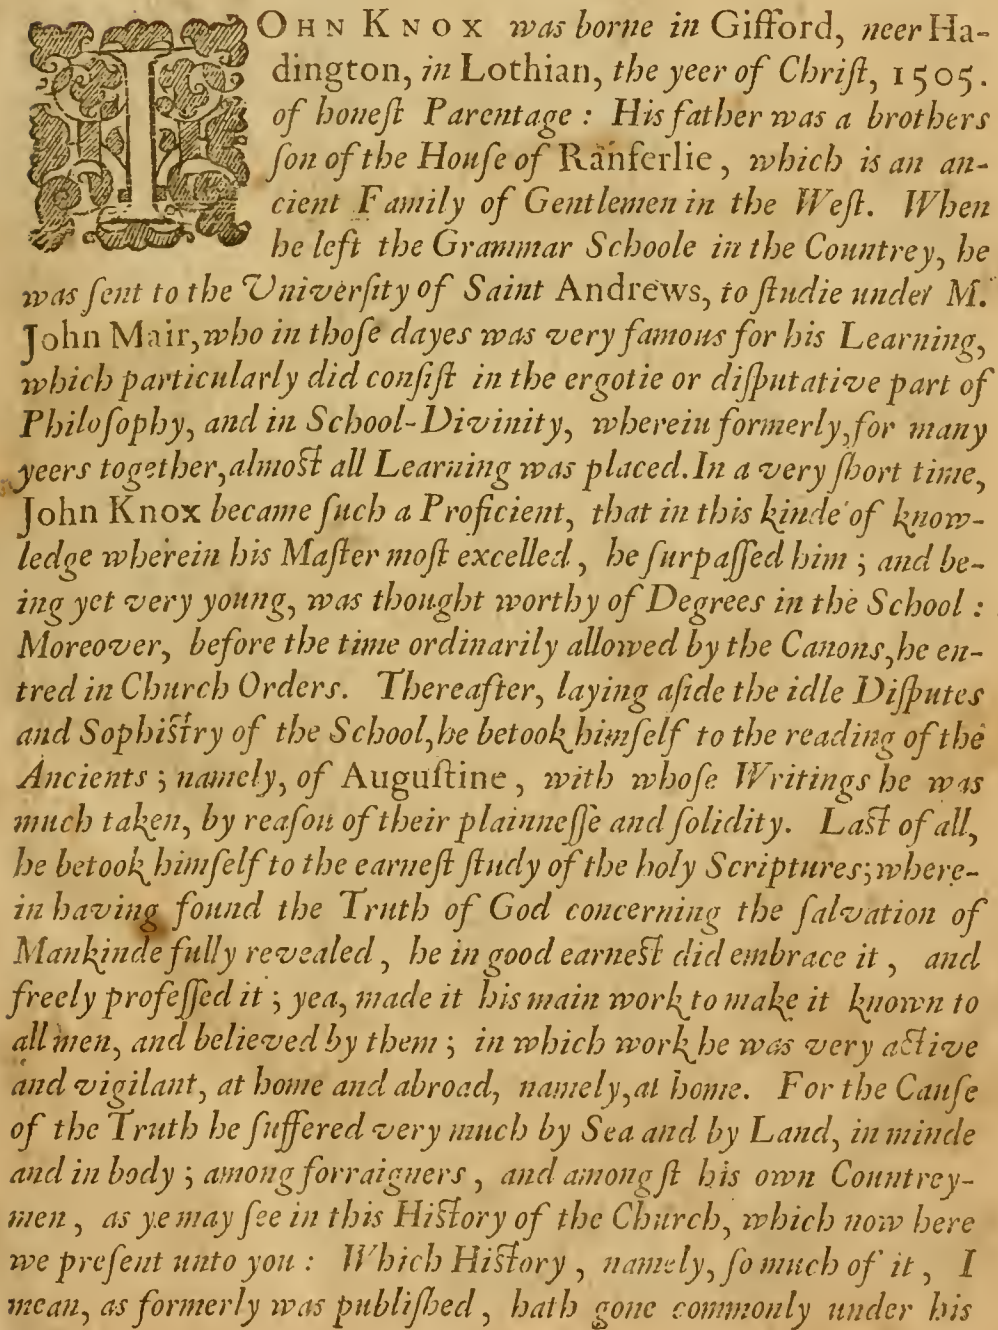 IOHN KNOX was borne in Gifford, neer Ha-
dington, in Lothian, the yeer of Chriſt, 1505.
of honeſt Parentage : His father was a brothers
ſon of the Houſe of Ranferlie, which is an an-
cient Family of Gentlemen in the Weſt. When
he left the Grammar Schoole in the Countrey, he
was ſent to the Univerſity of Saint Andrews, to ſtudie under M.
John Mair, who in thoſe dayes was very famous for his Learning,
which particularly did conſiſt in the ergotie or diſputative part of
Philoſophy, and in School-Divinity, wherein formerly, for many
yeers together, almoſt all Learning was placed. In a very ſhort time,
John Knox became ſuch a Proficient, that in this kinde of know-
ledge wherein his Maſter moſt excelled, he ſurpaſſed him ; and be-
ing yet very young, was thought worthy of Degrees in the School :
Moreover, before the time ordinarily allowed by the Canons, he en-
tred in Church Orders. Thereafter, laying aſide the idle Diſputes
and Sophiſtry of the School, he betook himſelf to the reading of the
Ancients ; namely, of Auguſtine, with whoſe Writings he was
much taken, by reaſon of their plainneſſe and ſolidity. Laſt of all,
he betook himſelf to the earneſt ſtudy of the holy Scriptures; where-
in having found the Truth of God concerning the ſalvation of
Mankinde fully revealed, he in good earneſt did embrace it, and
freely profeſſed it ; yea, made it his main work to make it known to
all men, and believed by them ; in which work he was very active
and vigilant, at home and abroad, namely, at home. For the Cauſe
of the Truth he ſuffered very much by Sea and by Land, in minde
and in body ; among forraigners, and amongſt his own Countrey-
men, as ye may ſee in this Hiſtory of the Church, which now here
we preſent unto you : Which Hiſtory, namely, ſo much of it, I
mean, as formerly was publiſhed, hath gone commonly under his